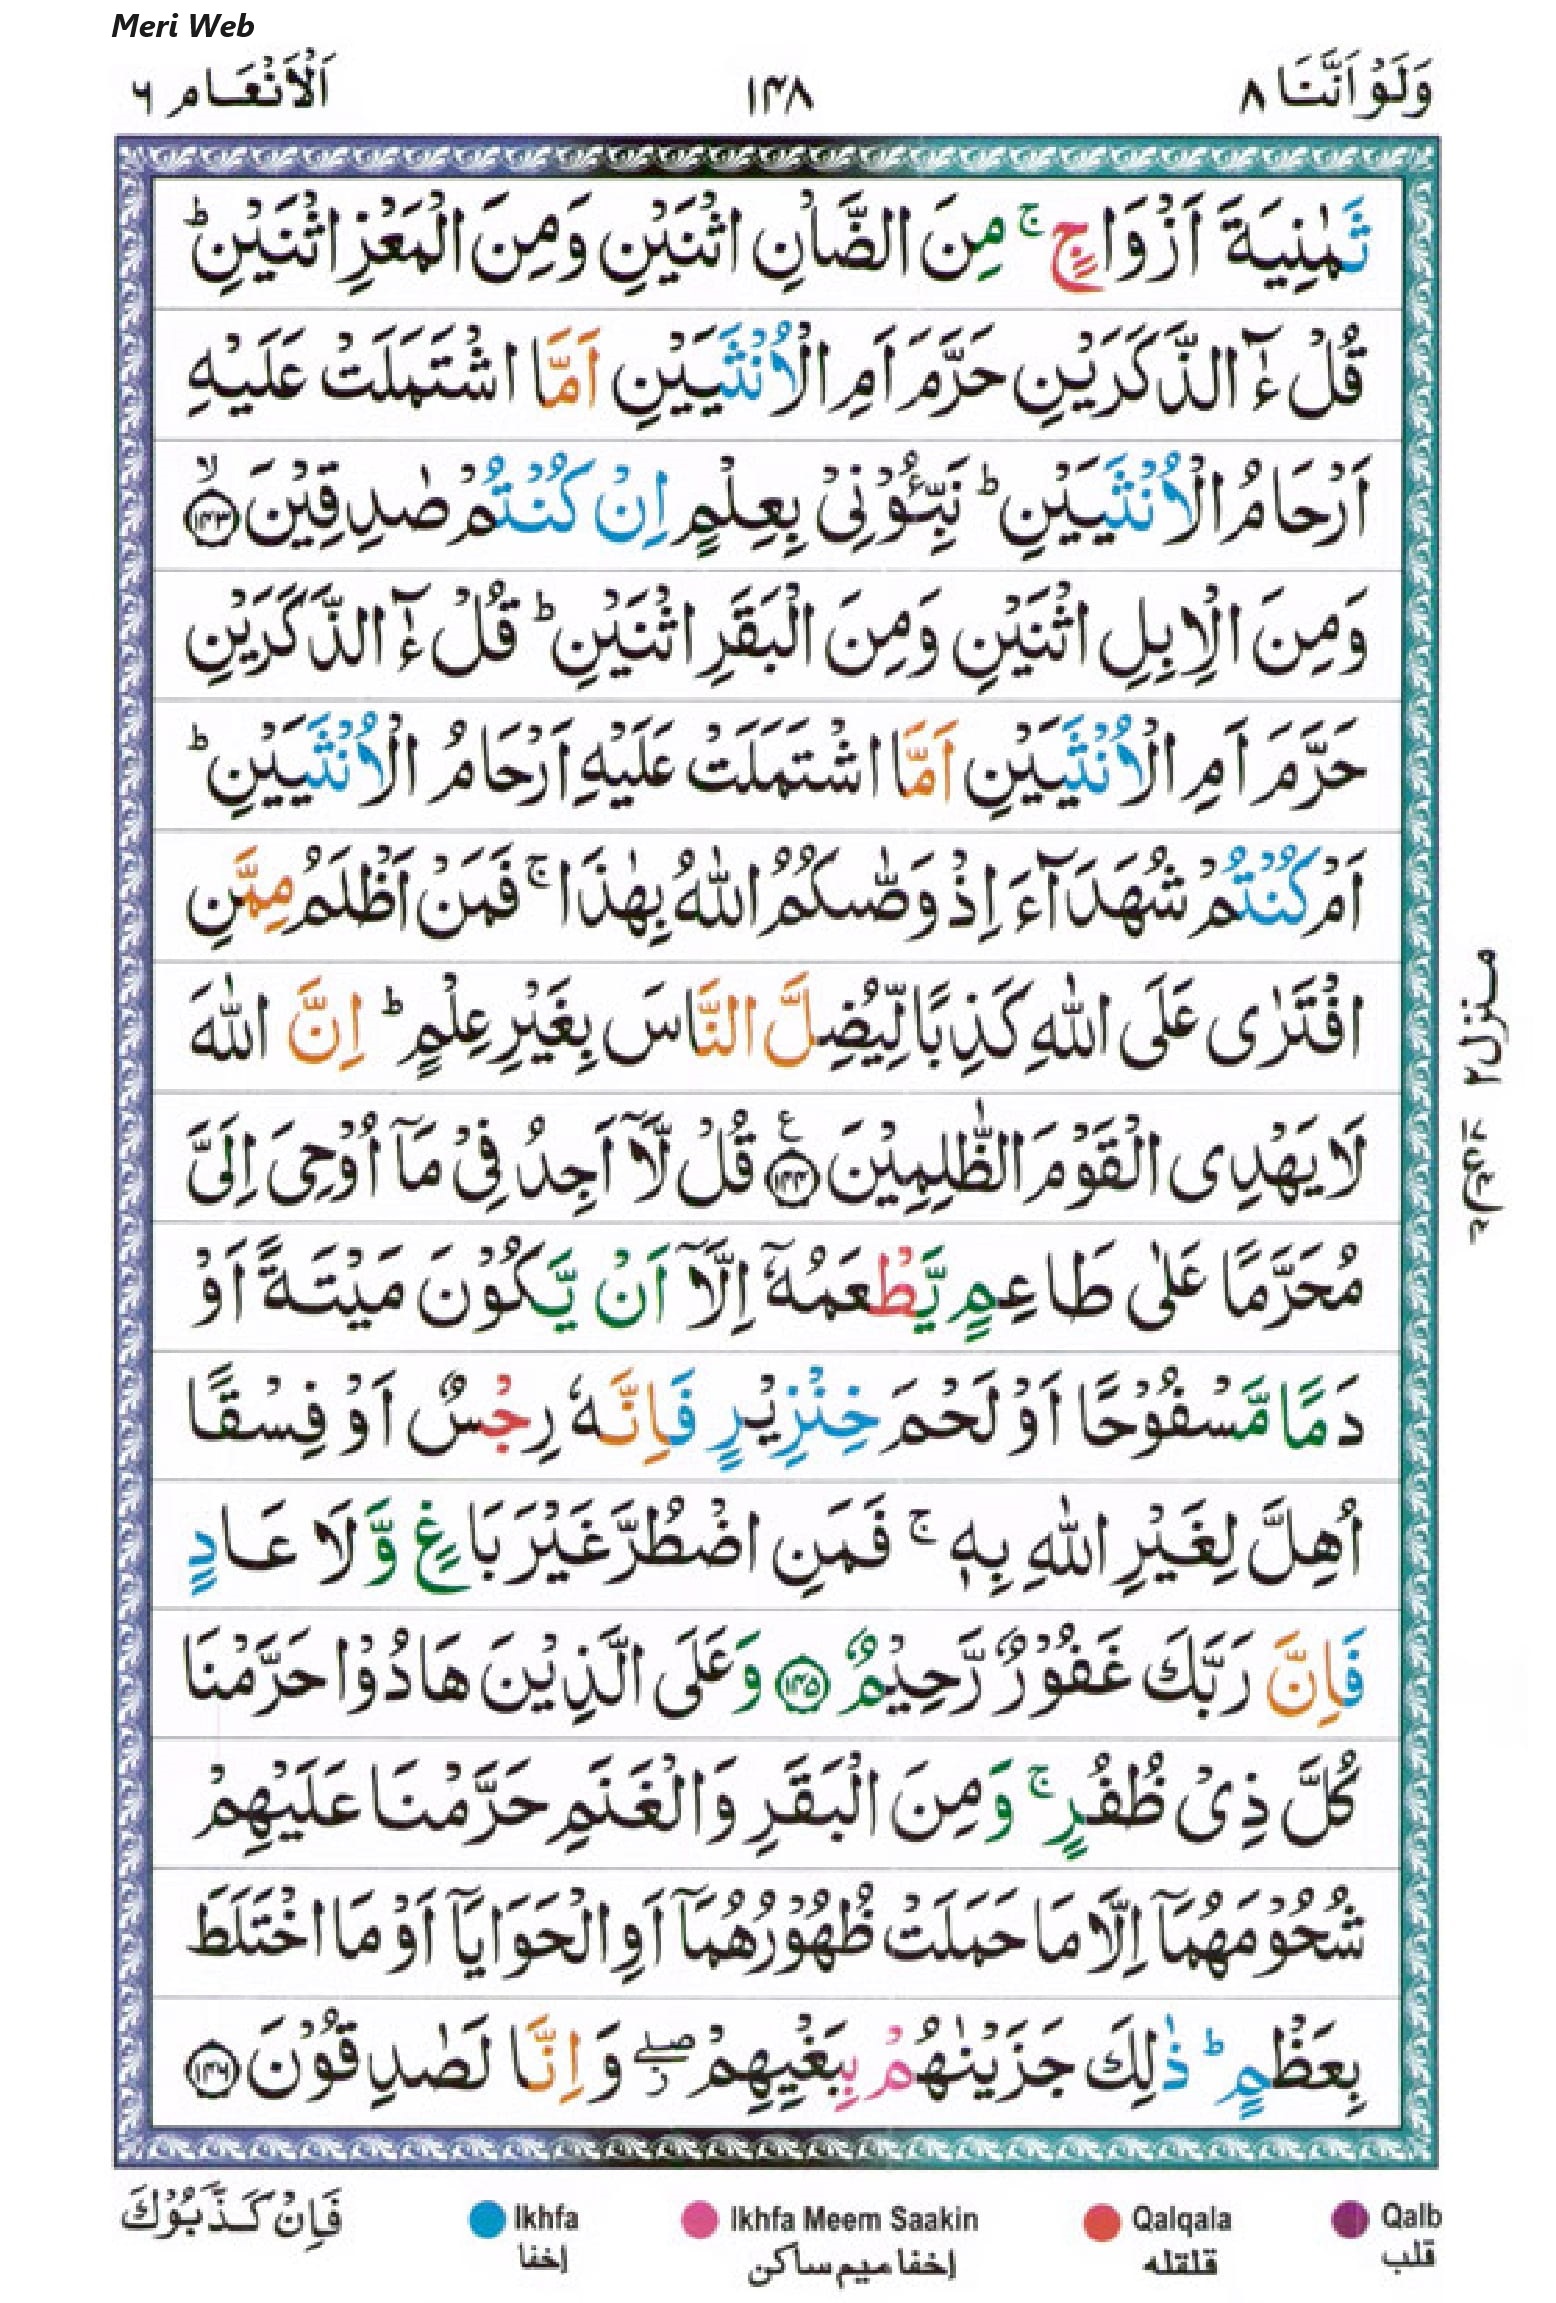 Meri Web
وَلَوْ اَنَّنَا ٨ ١٤٨ اَلْاَنْعَام ٦
ثَمٰنِيَةَ اَزْوَاجٍ ۚ مِنَ الضَّاْنِ اثْنَيْنِ وَمِنَ الْمَعْزِ اثْنَيْنِ ؕ
قُلْ ءٰٓالذَّكَرَيْنِ حَرَّمَ اَمِ الْاُنْثَيَيْنِ اَمَّا اشْتَمَلَتْ عَلَيْهِ
اَرْحَامُ الْاُنْثَيَيْنِ ؕ نَبِّـُٔوْنِىْ بِعِلْمٍ اِنْ كُنْتُمْ صٰدِقِيْنَ ۙ ﴿١٤٣﴾
وَمِنَ الْاِبِلِ اثْنَيْنِ وَمِنَ الْبَقَرِ اثْنَيْنِ ؕ قُلْ ءٰٓالذَّكَرَيْنِ
حَرَّمَ اَمِ الْاُنْثَيَيْنِ اَمَّا اشْتَمَلَتْ عَلَيْهِ اَرْحَامُ الْاُنْثَيَيْنِ ؕ
اَمْ كُنْتُمْ شُهَدَآءَ اِذْ وَصّٰٮكُمُ اللّٰهُ بِهٰذَا ۚ فَمَنْ اَظْلَمُ مِمَّنِ
افْتَرٰى عَلَى اللّٰهِ كَذِبًا لِّيُضِلَّ النَّاسَ بِغَيْرِ عِلْمٍ ؕ اِنَّ اللّٰهَ
لَا يَهْدِى الْقَوْمَ الظّٰلِمِيْنَ ﴿١٤٤﴾ ع قُلْ لَّاۤ اَجِدُ فِىْ مَاۤ اُوْحِىَ اِلَىَّ
مُحَرَّمًا عَلٰى طَاعِمٍ يَّطْعَمُهٗۤ اِلَّاۤ اَنْ يَّكُوْنَ مَيْتَةً اَوْ
دَمًا مَّسْفُوْحًا اَوْ لَحْمَ خِنْزِيْرٍ فَاِنَّهٗ رِجْسٌ اَوْ فِسْقًا
اُهِلَّ لِغَيْرِ اللّٰهِ بِهٖ ۚ فَمَنِ اضْطُرَّ غَيْرَ بَاغٍ وَّلَا عَادٍ
فَاِنَّ رَبَّكَ غَفُوْرٌ رَّحِيْمٌ ﴿١٤٥﴾ وَعَلَى الَّذِيْنَ هَادُوْا حَرَّمْنَا
كُلَّ ذِىْ ظُفُرٍ ۚ وَمِنَ الْبَقَرِ وَالْغَنَمِ حَرَّمْنَا عَلَيْهِمْ
شُحُوْمَهُمَاۤ اِلَّا مَا حَمَلَتْ ظُهُوْرُهُمَاۤ اَوِ الْحَوَايَاۤ اَوْ مَا اخْتَلَطَ
بِعَظْمٍ ؕ ذٰلِكَ جَزَيْنٰهُمْ بِبَغْيِهِمْ ۖ وَاِنَّا لَصٰدِقُوْنَ ﴿١٤٦﴾
منزل ٢
فَاِنْ كَذَّبُوْكَ
Ikhfa Ikhfa Meem Saakin Qalqala Qalb
إخفا إخفا ميم ساكن قلقله قلب